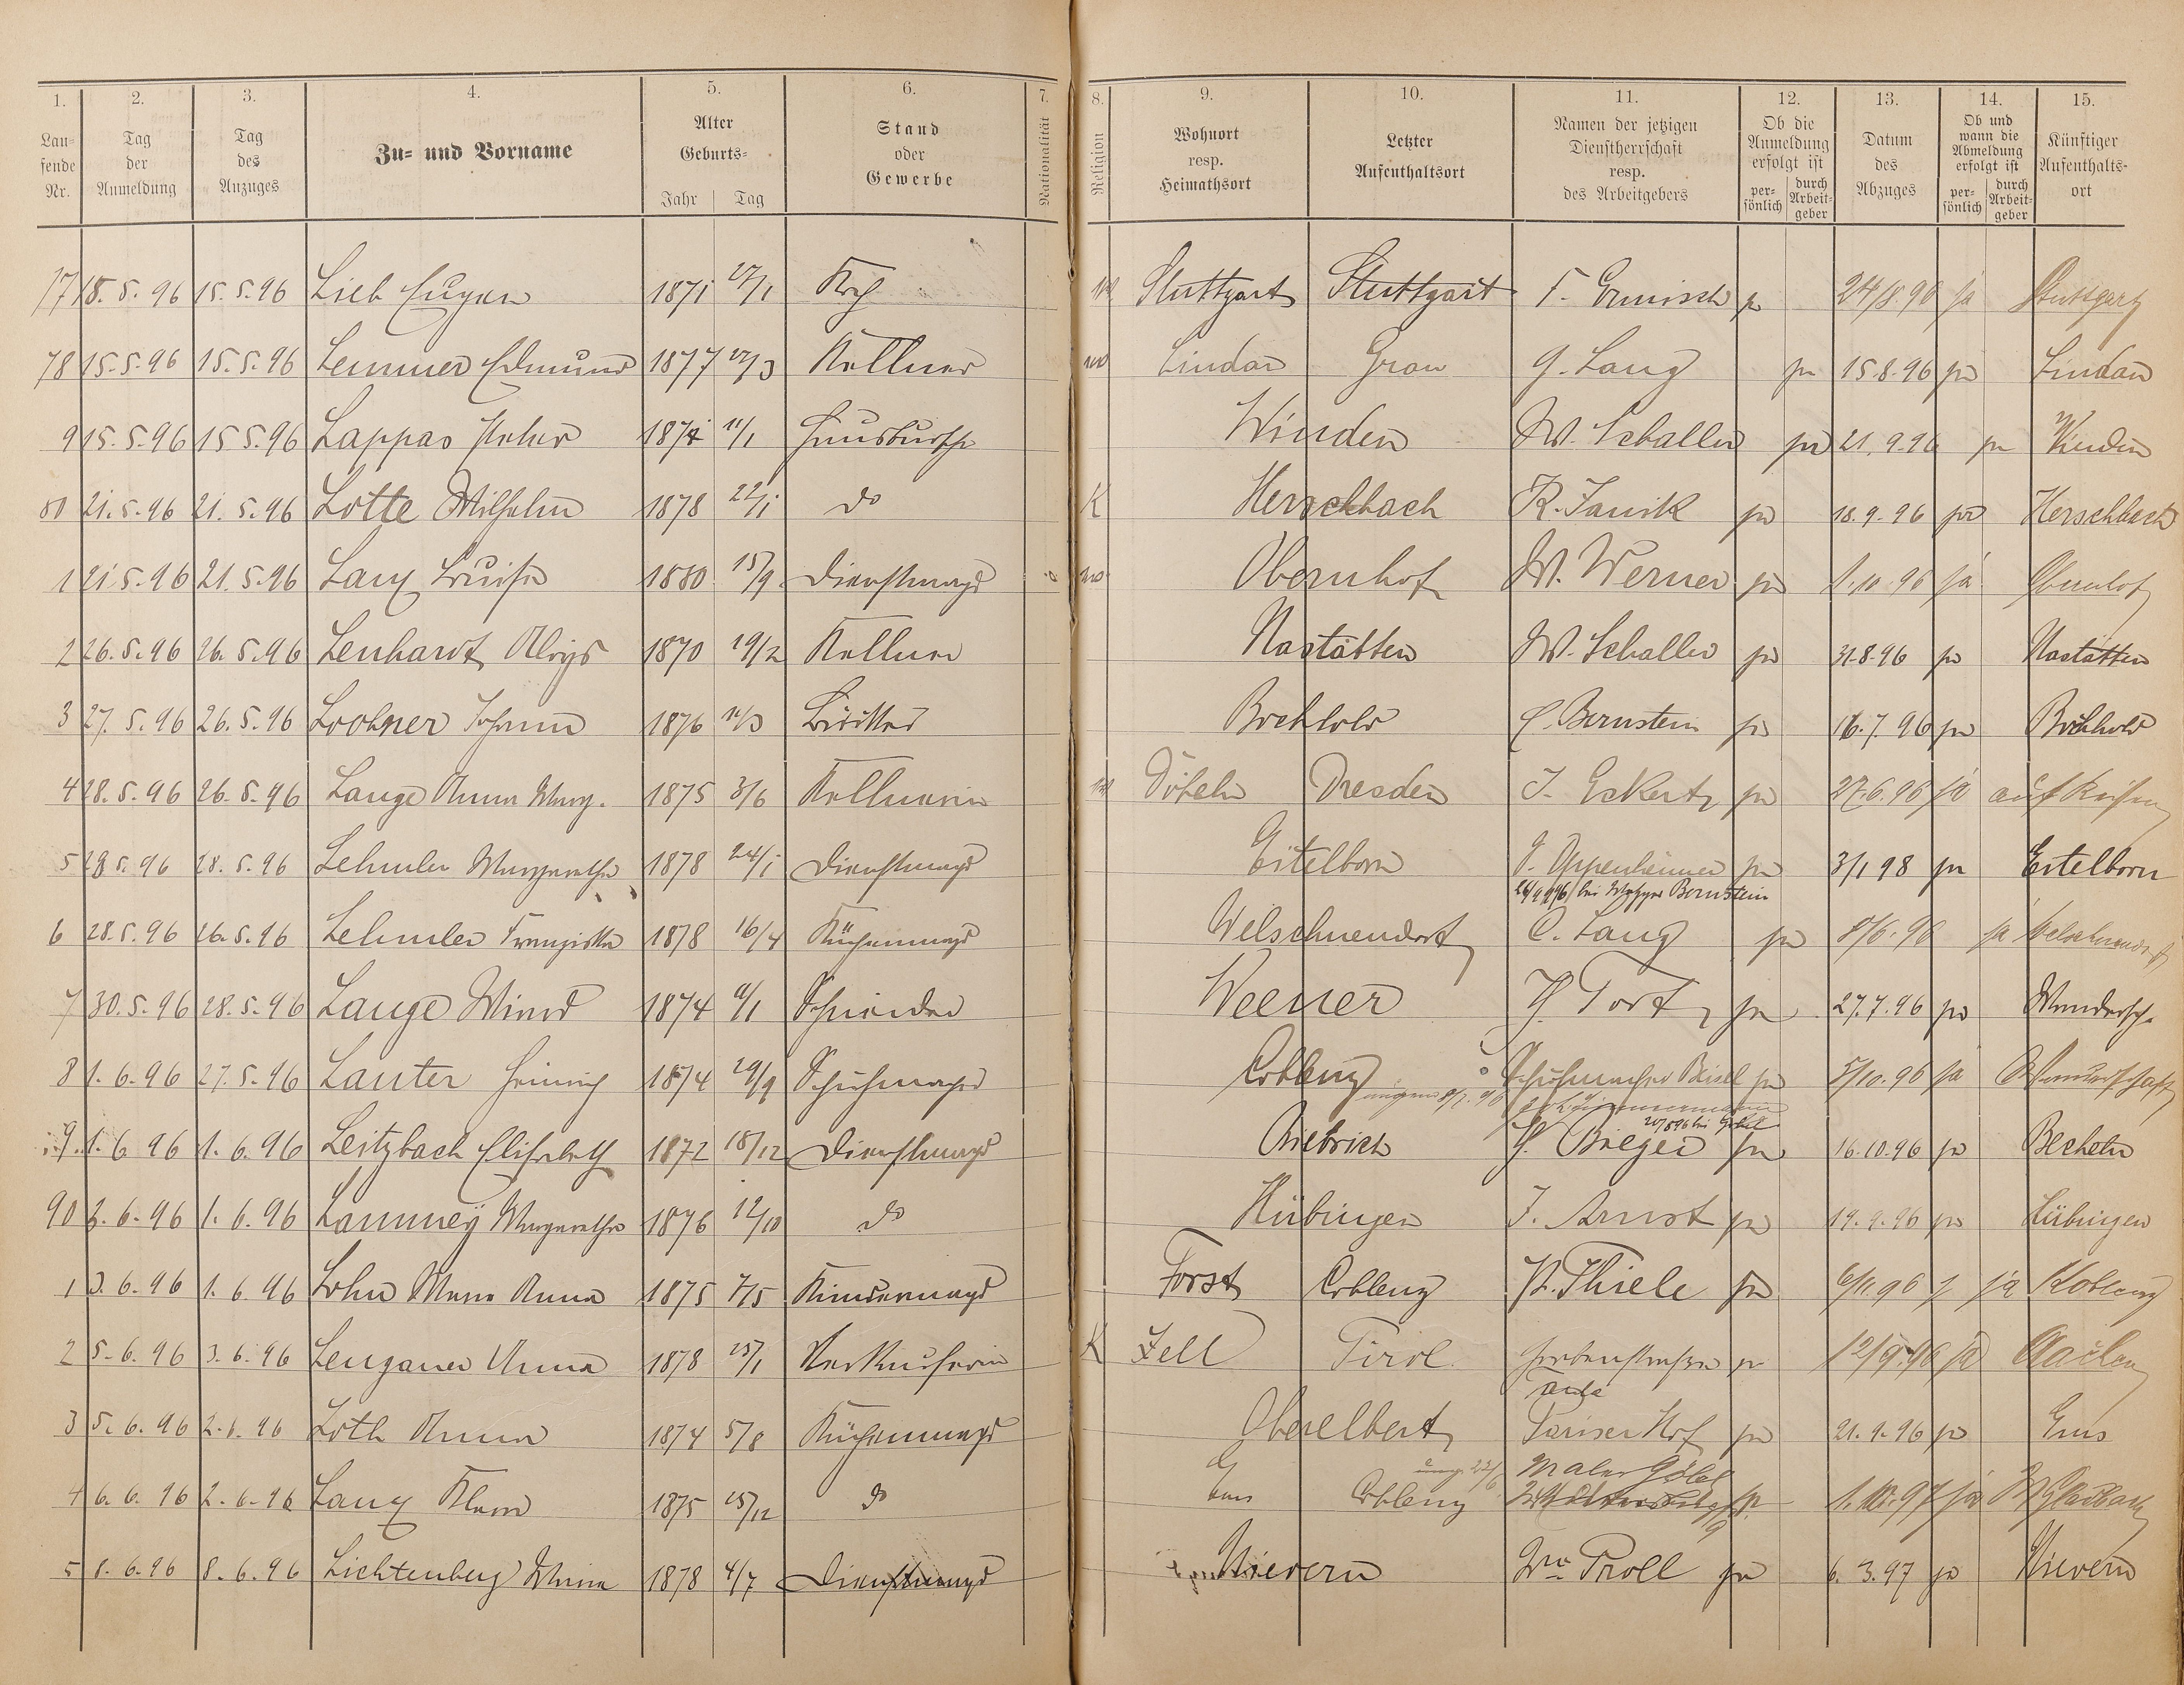 1. 2. 3. 4. 5. 6. 7. 8. 9. 10. 11. 12. 13. 14. 15.
Laufende Nr. Tag der Anmeldung Tag des Anzuges Zu- und Vorname Alter Geburts- Jahr Tag Stand oder Gewerbe Nationalität Religion Wohnort resp. Heimathsort Letzter Aufenthaltsort Namen der jetzigen Dienstherrschaft resp. des Arbeitgebers Ob die Anmeldung erfolgt ist persönlich durch Arbeitgeber Datum des Abzuges Ob und wann die Abmeldung erfolgt ist persönlich durch Arbeitgeber Künftiger Aufenthaltsort
77 15.5.96 15.5.96 Lieb Eugen 1871 27/1 Koch Stuttgart Stuttgart F. Ermisch ja ja Stuttgart
78 15.5.96 15.5.96 Lemmer Edmund 1877 Kellner Lindau Grau G. Lang ja 15.8.96 ja Lindau
9 15.5.96 15.5.96 Lappas Peter 1874 11/1 Hausbursche Winden W. Schaller ja 21.9.96 ja Winden
80 21.5.96 21.5.96 Lotte Wilhelm 1878 22/1 do K Herschbach R. Janik ja 18.9.96 ja Herschbach
1 21.5.96 21.5.96 Lang Louise 1880 15/9 Dienstmagd Obernhof W. Werner ja 1.10.96 ja Obernhof
2 26.5.96 26.5.96 Lenhardt Aloys 1870 19/2 Kellner Nastätten W. Schaller ja 31.8.96 ja Nastätten
3 27.5.96 26.5.96 Lochner Johann 1876 11/3 Bochhold C. Bernstein ja 16.7.96 ja Bochhold
4 28.5.96 26.5.96 Lange Anna Marg. 1875 3/6 Kellnerin Döbeln Dresden J. Eckert ja 27.6.96 ja auf Reisen
5 28.5.96 28.5.96 Lehmler Margaretha 1878 24/1 Dienstmagd Eitelborn J. Oppenheimer ja 3/1 98 ja Eitelborn
bei Metzger Bernstein
6 28.5.96 26.5.96 Lehmler Franziska 1878 16/4 Küchenmagd Welschneudorf C. Lang ja 8/6.96 ja Welschneudorf
7 30.5.96 28.5.96 Lange Wiard 1874 Schneider Weener H. Tort ja 27.7.96 ja Wandersch.
8 1.6.96 27.5.96 Lauter Heinrich 1874 29/9 Schuhmacher Coblenz Schuhmacher Beisel ja 5/10.96 ja Wanderschaft
9 1.6.96 1.6.96 Leitzbach Elisabeth 1872 18/12 Dienstmagd Biebrich H. Bieger ja 16.10.96 ja Becheln
90 2.6.96 1.6.96 Lammey Margaretha 1876 12/10 do Hübingen J. Arnst ja 19.9.96 ja Hübingen
1 3.6.96 1.6.96 Lohn Maria Anna 1875 7/5 Kindermagd Forst Coblenz P. Thiele ja 6/11.96 ja Koblenz
2 5.6.96 3.6.96 Lengauer Anna 1878 25/1 Verkäuferin K Zell Tirol ja 12/9.96 ja Aachen
3 5.6.96 2.6.96 Loth Anna 1874 5/8 Küchenmagd Oberelbert Pariser Hof ja 21.9.96 ja Ems
4 6.6.96 2.6.96 Lang Klara 1875 25/12 do Ems Coblenz Maler Göbel ja ja
5 8.6.96 8.6.96 Lichtenberg Mina 1878 4/7 Dienstmagd Nievern Wwe Proll ja 6.3.97 ja Nievern